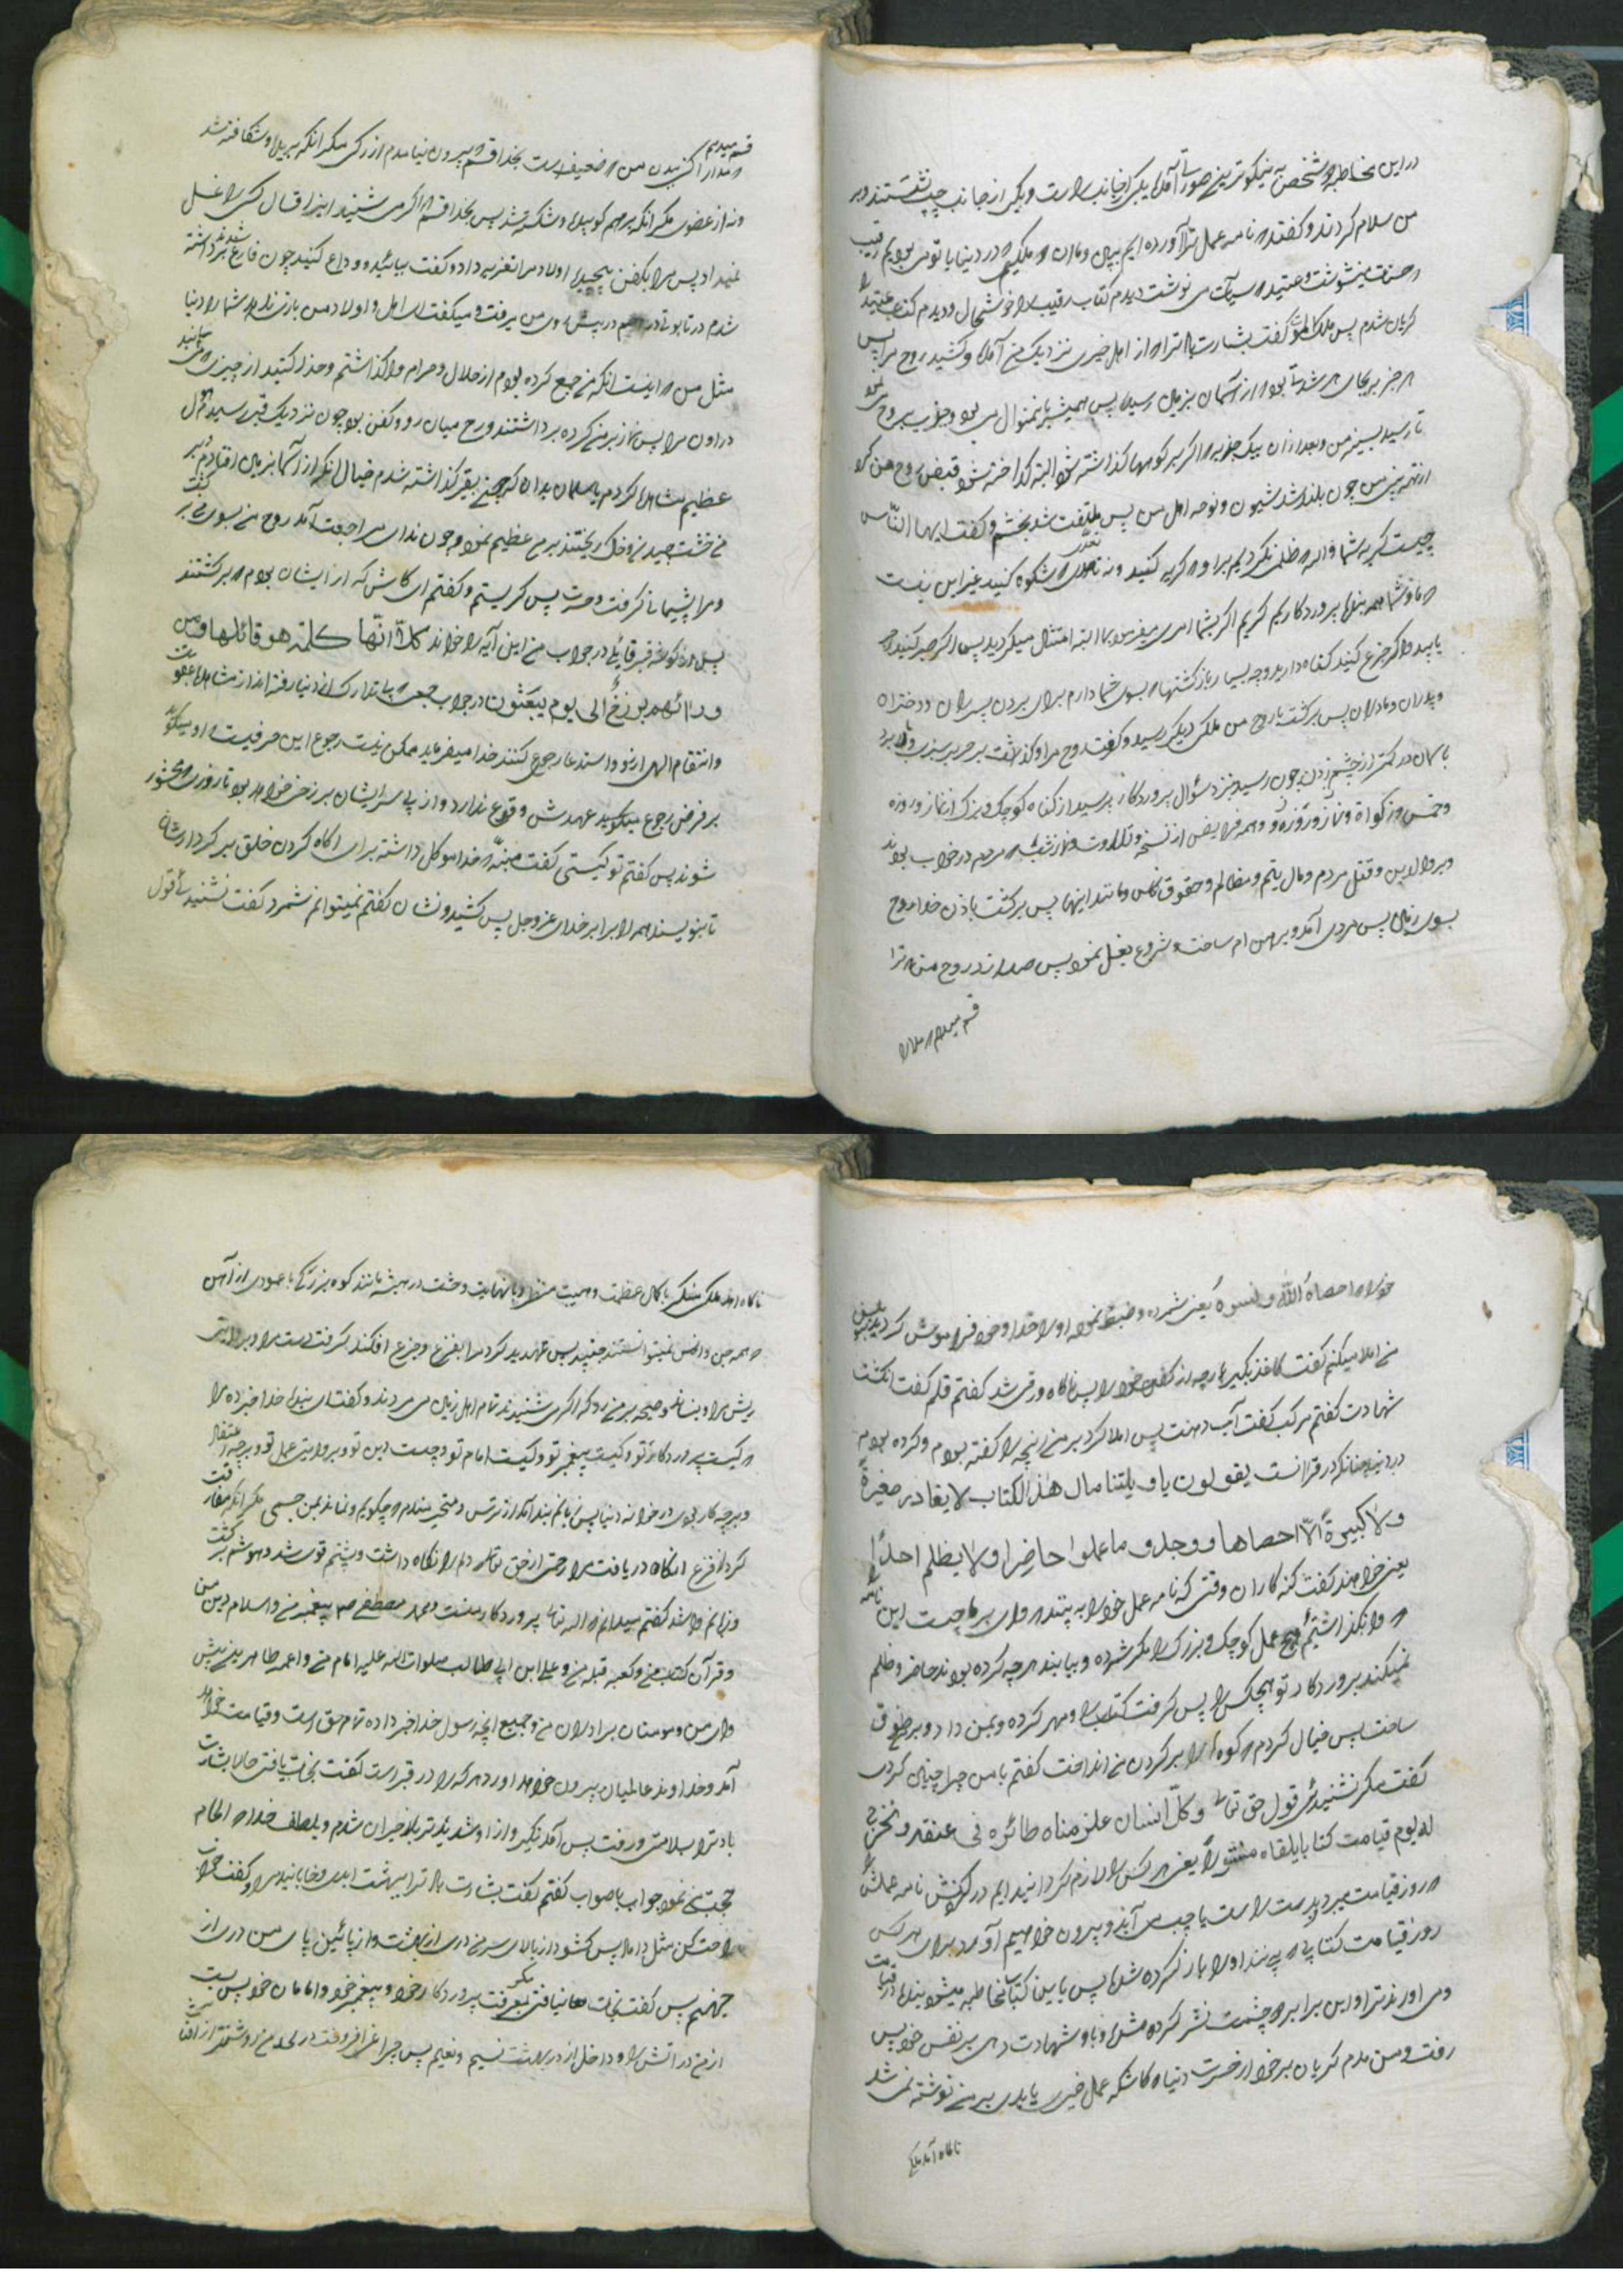 در این مخاطبه دو شخص به نیکوترین صورتی آمدند یکی از جانب راست و یکی از جانب چپ نشستند و بر
من سلام کردند و گفتند که نامه عمل ترا آورده ایم بدان که ما دو ملکیم که در دنیا با تو می بودیم رقیب
که حسنات می نوشت و عتید که سیئات می نوشت دیدم کتاب رقیب را خوشحال و دیدم کتاب عتید را
گریان شدم پس ملک الموت گفت بشارت باد ترا که از اهل خیری نزدیک من آمد و کشید روح مرا پس
هر جزء بجای هر شدتی بود که از آسمان بزمین رسید پس همیشه باین منوال می بود و جذب روح می نمود
تا رسید بسینه من و بعد از آن یک جذبه که اگر بر کوهها گذاشته شود البته گداخته شود قبض روح من کرد
از بینی من چون بلند شد شیون و نوحه اهل من پس ملتفت شد بخشم و گفت ایها الناس
چیست گریه شما والله که ظلمی نکردیم بر او که گریه کنید و نه تعدی که شکوه کنید غیر این نیست
که ما و شما همه بنده پروردگاریم اگر بشما امر می فرمود بما البته امتثال میکردید پس اگر صبر کنید اجر
یابید و اگر جزع کنید گناه دارید و چه بسیار بازگشتها که بسوی شما دارم برای بردن پسران و دختران
و پدران و مادران پس برگشت با روح من ملکی دیگر رسید و گرفت روح مرا و گذاشت بر حریر سبز و بالا برد
بآسمان در کمتر از چشم زدن چون رسید بنزد سؤال پروردگار پرسید از گناه کوچک و بزرگ از نماز و روزه
و خمس و زکواة و نماز و روزه و همه فرایض از نسخه و تلاوت و نماز شب که مردم در خواب بودند
و بر والدین و قتل مردم و مال یتیم و مظالم و حقوق ناس و مانند اینها پس برگشت باذن خدا روح
بسوی زمین پس مردی آمد و برهنه ام ساخت و شروع بغسل نمود پس صدا زد روح من که ترا
قسم میدهم که مدارا
قسم میدهم
که مدارا کن ببدن من که ضعیف است بخدا قسم که بیرون نیامدم از رگی مگر آنکه بریده و شکافته شد
و نه از عضوی مگر آنکه بر هم کوبیده و شکسته شد پس بخدا قسم که اگر می شنید این اقسال کسی را غسل
نمیداد پس مرا بکفن پیچید و اولاد مرا تعزیه داد و گفت بیائید و وداع کنید چون فارغ شدند برداشته
شدم در تابوت و روحم در پیش روی من میرفت و میگفت ای اهل و اولاد من بازی ندهد شما را دنیا
مثل من که اینست آنکه من جمع کرده بودم از حلال و حرام واگذاشتم و حذر کنید از چیزی که می مانید
در اون مرا پس نماز بر من کرده برداشتند و روح میان رو و کفن بود چون نزدیک قبر رسید هول
عظیم مشاهده کردم یا سلمان بدان که چون بقبر گذاشته شدم خیال آنکه از آسمان بزمین افتادم بر
من خشت چیدند و خاک ریختند بر من عظیم نمود و چون ندای مراجعت آمد روح من بسوی بر گشت
و مرا پشیمانی گرفت و حسرت پس گریستم و گفتم ای کاش که از ایشان بودم که برگشتند
پس از گوشه قبر قائلی در جواب من این آیه را خواند کلا انها کلمة هو قائلها و من
ورائهم برزخ الی یوم یبعثون در جواب جمعی که بتدارک از دنیا رفته اند از مشاهده عقوبت
و انتقام الهی آرزو و استدعا رجوع کنند خدا میفرماید ممکن نیست رجوع این حرفیست که او میگوید
بر فرض رجوع میگوید عهدش وقوع ندارد و از پی سر ایشان برزخی خواهد بود تا روزی که محشور
شوند پس گفتم تو کیستی گفت منبه که خدا موکل داشته برای آگاه کردن خلق بر کردارشان
تا بنویسند همه را برابر خدای عز و جل پس کشید و نشاند گفتم نمیتوانم شمرد گفت نشنیده قول
خود را که احصاه الله و نسوه یعنی شمرده و ضبط نموده او را خدا و خود فراموش کردید بنویس
من املا میکنم گفتم کاغذ بگیر پارچه از کفن خود را پس ناگاه ورقی شد گفتم قلم گفت انگشت
شهادت گفتم مرکب گفت آب دهنت پس املا کرد بر من آنچه را گفته بودم و کرده بودم
در دنیا چنانکه در قرآنست یقولون یا ویلتنا مال هذا الکتاب لا یغادر صغیرة
ولا کبیرة الا احصاها و وجدوا ما عملوا حاضرا ولا یظلم احدا
یعنی خواهند گفت گنه کاران وقتی که نامه عمل خود را به بینند که وای بر ما چیست این نامه را
که وا نگذاشته هیچ عمل کوچک و بزرگ را مگر شمرده و بیابند هر چه کرده بودند حاضر و ظلم
نمیکند پروردگار تو هیچکس را پس گرفت کتاب را و مهر کرده و بمن داد و بر طوق
ساخت پس خیال کردم که کوه را بر گردن من انداخت گفتم با من چرا چنین کردی
گفت مگر نشنیده قول حق تعالی و کل انسان الزمناه طائره فی عنقه و نخرج
له یوم قیامت کتابا یلقاه منشورا یعنی هر کس را لازم گردانیده ایم در گردنش نامه عملش را
که روز قیامت بر دست راست یا چپ می آید و بیرون خواهیم آورد برای هر کس
روز قیامت کتابی که بیند او را باز کرده شده پس باین کتاب مخاطبه میشوی بنده در قیامت
و می آورند ترا و این برابر دو چشمت نشر کرده شده و با او شهادت دهی بر نفس خود پس
رفت و من ماندم گریان بر خود از حسرت دنیا که کاشکه عمل خیر یا بدی بر من نوشته نمی شد
ناگاه آمد ملکی
ناگاه آمد ملک منکر با کمال عظمت و هیبت منظر و با نهایت وحشت در جثه مانند کوه بزرگی با عمودی از آهن
که همه جن و انس نمیتوانستند جنبید پس تهدید کرد مرا بفزع و جزع افکند گرفت دست مرا و بروایتی
ریش مرا و بنشاند و صیحه بر من زد که اگر می شنیدند تمام اهل زمین می مردند و گفت ای بنده خدا خبر ده مرا
که کیست پروردگار تو و کیست پیغمبر تو و کیست امام تو و چیست دین تو و بروایتی عمل تو و بر چه اعتقاد
و بر چه کار بودی در خانه دنیا پس زبانم بند آمد از ترس و متحیر ماندم که چگویم و نماند بمن جسمی مگر آنکه مفارقت
کرد از فزع آنگاه دریافت مرا رحمتی از حق تعالی که دلم را نگاه داشت و پشتم قوی شد و هوشم برگشت
و زبانم وا شد گفتم میدانم که الله تعالی پروردگار منست و محمد مصطفی ص پیغمبر من و اسلام دین من
و قرآن کتاب من و کعبه قبله من و علی ابن ابی طالب صلوات الله علیه امام من و ائمه طاهرین پیش
وای من و مومنان برادران من و جمیع آنچه رسول خدا خبر داده تمام حق است و قیامت خواهد
آمد و خداوند عالمیان بیرون خواهد آورد هر که را در قبر است گفت نجات یافتی حالا بشارت
باد ترا بسلامتی و رفت پس آمد نکیر و از او شدیدتر بلا حیران شدم و بلطف خدا که الهام
حجت من نمود جواب با صواب گفتم گفت بشارت باد ترا ببهشت ابدی و خوابانید مرا و گفت خواب
راحت کن مثل داماد پس گشود از بالای سر من دری از بهشت و از پائین پای من دری از
جهنم پس گفت نجات نیافتی مگر بمعرفت پروردگار خود و پیغمبر خود و امامان خود پس بست
از من در آتش را و داخل از در بهشت نسیم و نعیم پس چراغی افروخت در لحد من روشنتر از آفتاب